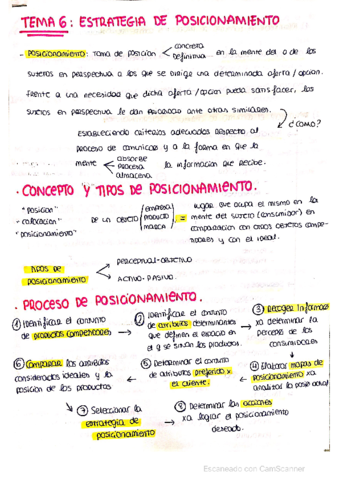 TEMA 6: ESTRATEGIA DE POSICIONAMIENTO
- POSICIONAMIENTO: toma de posición concreta definitiva en la mente del o de los
sujetos en perspectiva a los que se dirige una determinada oferta/opción.
Frente a una necesidad que dicha oferta/opción pueda satisfacer, los
sujetos en perspectiva le dan prioridad ante otras similares.
¿CÓMO?
Estableciendo criterios adecuados respecto al
proceso de comunicac y a la forma en que la
mente absorbe procesa almacena la información que recibe.
· CONCEPTO Y TIPOS DE POSICIONAMIENTO.
"posición"
"colocación"
"posicionamiento"
DE UN OBJETO
empresa
PRODUCTO
MARCA
=
lugar que ocupa el mismo en la
mente del sujeto (consumidor) en
comparación con otros objetos compe-
tidores y con el ideal.
TIPOS DE
POSICIONAMIENTO
PERCEPTUAL-OBJETIVO
ACTIVO-PASIVO.
· PROCESO DE POSICIONAMIENTO.
① Identificar el conjunto
de productos competidores
② Identificar el conjunto
de atributos determinantes
que definen el espacio en
el q se sitúan los productos.
③ Recoger informac
xa determinar la
percepc de los
consumidores
④ Elaborar mapas de
posicionamiento xa
analizar la posic actual
⑤ Determinar el conjunto
de atributos preferido x
el cliente.
⑥ Comparar los atributos
considerados ideales y la
posición de los productos
⑦ Seleccionar la
estrategia de
posicionamiento
⑧ Determinar las acciones
xa lograr el posicionamiento
deseado.
Escaneado con CamScanner